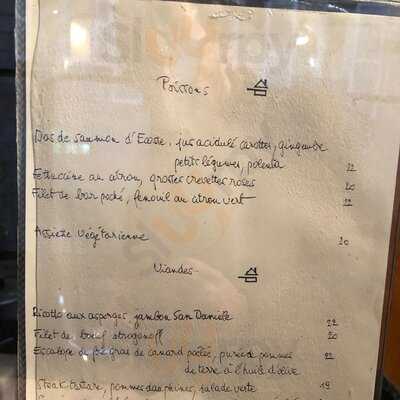 Poissons
Dos de saumon d'Ecosse, jus acidulé carottes, gingembre
petits légumes, polenta 22
Fettucine au citron, grosses crevettes roses 20
Filet de bar poché, fenouil au citron vert 22
Assiette végétarienne 20
Viandes
Risotto aux asperges, jambon San Daniele 22
Filet de boeuf stroganoff 20
Escalope de foie gras de canard poêlée, purée de pommes 22
de terre à l'huile d'olive
Steak tartare, pommes dauphines, salade verte 19